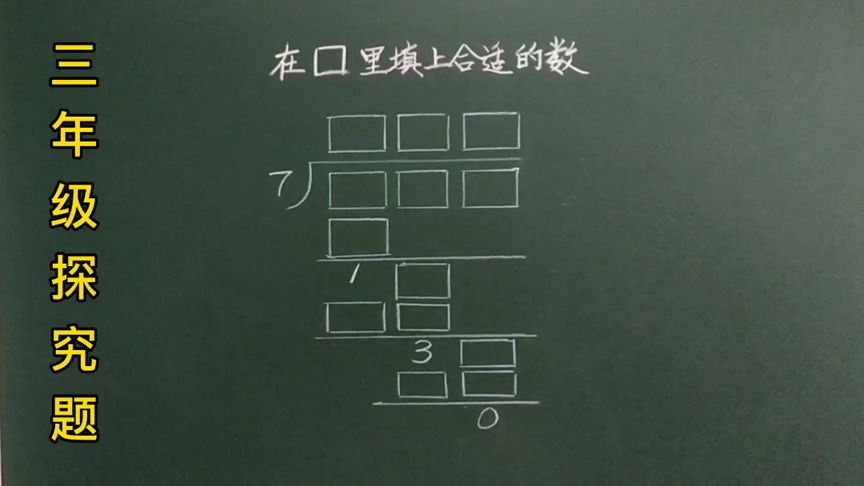 三年级探究题
在□里填上合适的数
□□□
7)□□□
□
1□
□□
3□
□□
0